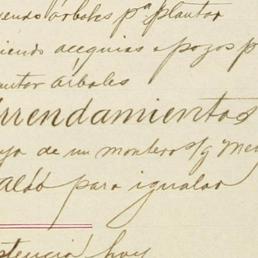 yendo árboles pª plantar
iendo acequias o pozos p
antar árboles
rrendamientos
de un montero s/g Men
aldó para igualar
stencia hoy